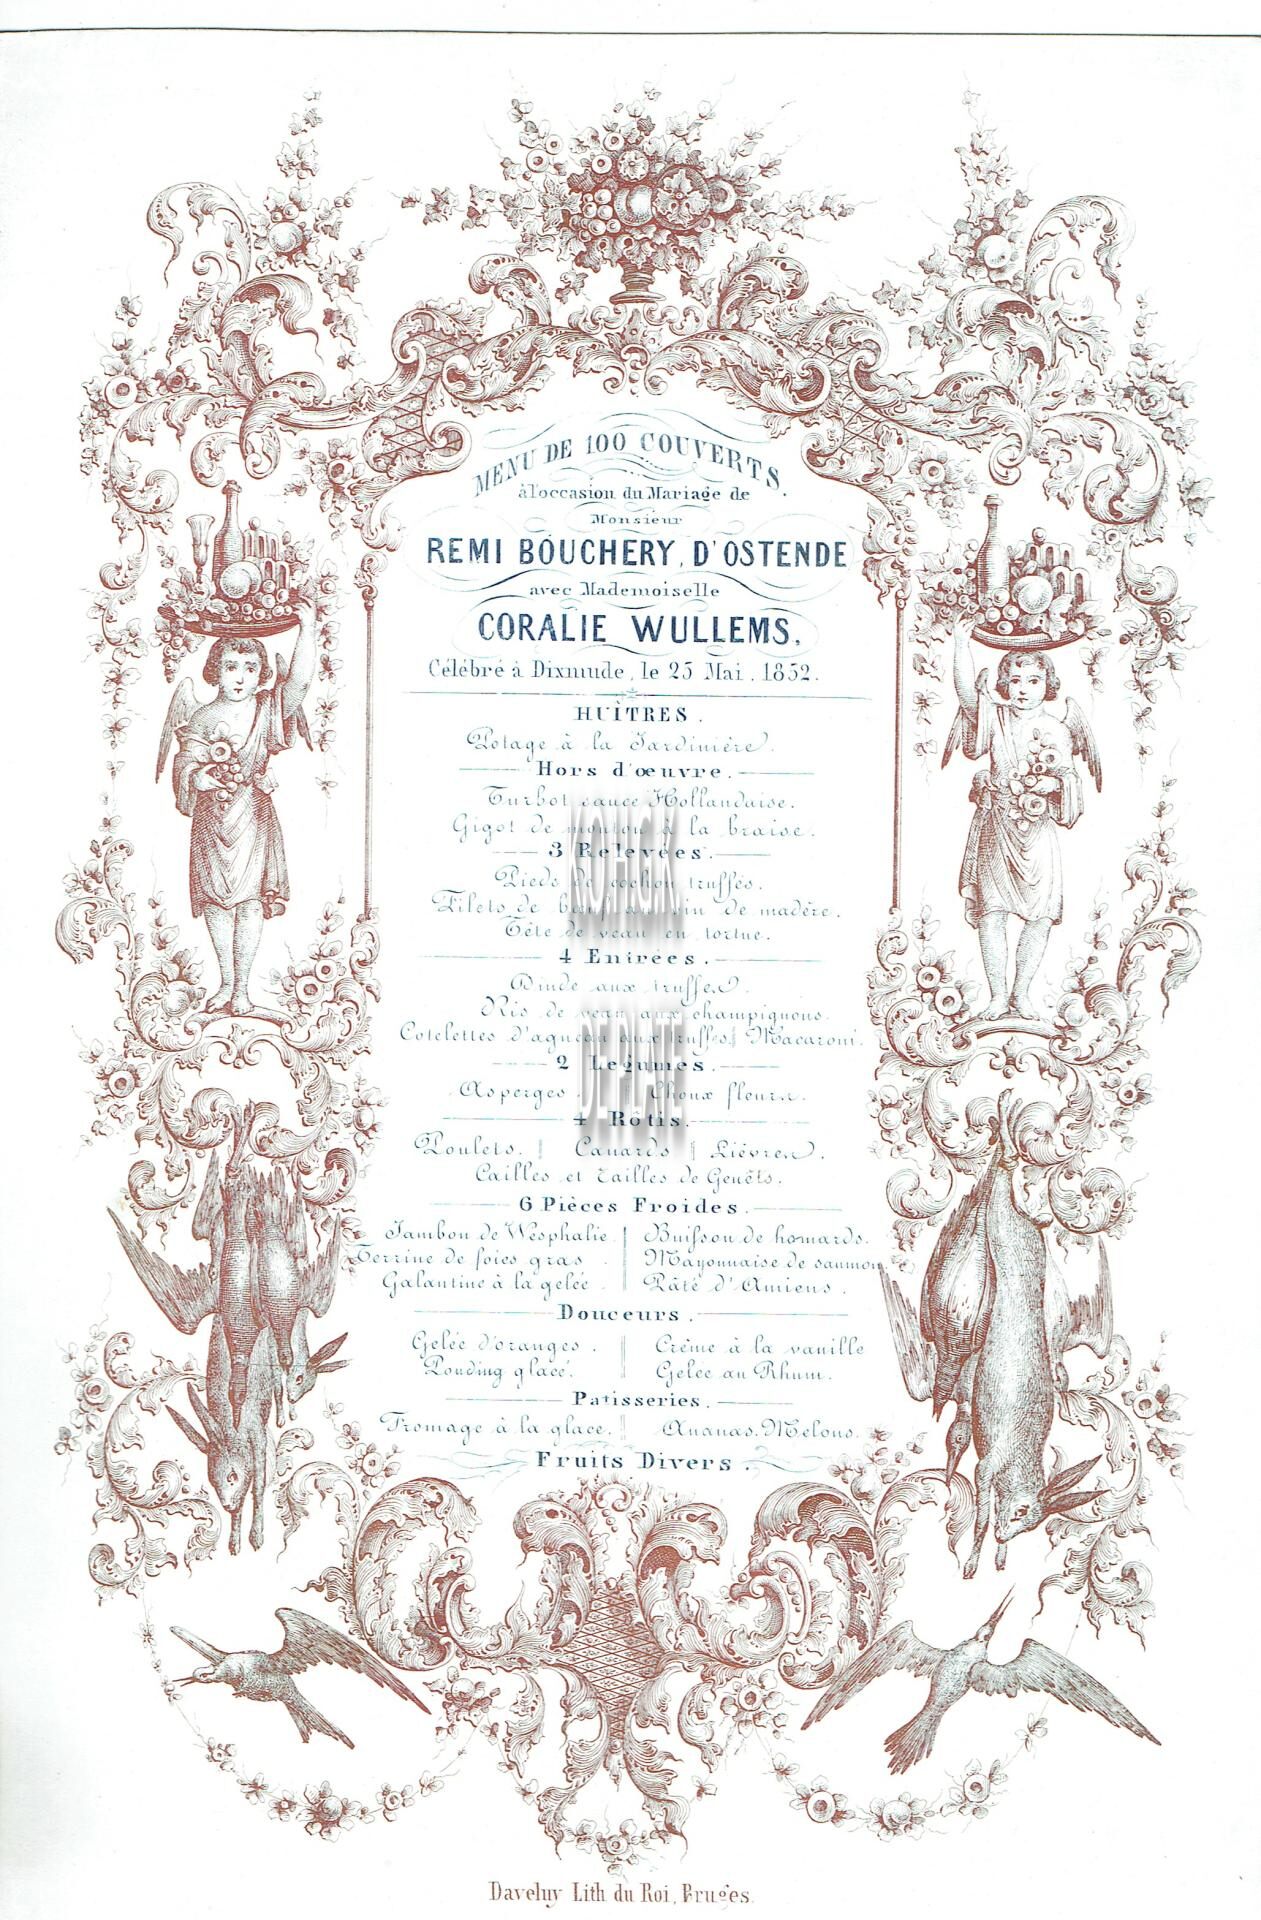 MENU DE 100 COUVERTS
à l'occasion du Mariage de
Monsieur
REMI BOUCHERY, D'OSTENDE
avec Mademoiselle
CORALIE WULLEMS,
Célébré à Dixmude, le 25 Mai, 1852.
HUÎTRES.
Potage à la Jardinière.
Hors d'œuvre.
Turbot sauce Hollandaise.
Gigot de mouton à la braise.
3 Relevées.
Pieds de cochon truffés.
Filets de bœuf au vin de madère.
Tête de veau en tortue.
4 Entrées.
Dinde aux truffes.
Ris de veau aux champignons.
Cotelettes d'agneau aux truffes. Macaroni.
2 Légumes.
Asperges. Choux fleurs.
4 Rôtis.
Poulets. Canards. Lièvres.
Cailles et Tailles de Genêts.
6 Pièces Froides.
Jambon de Wesphalie. Buisson de homards.
Terrine de foies gras. Mayonnaise de saumon.
Galantine à la gelée. Pâté d'Amiens.
Douceurs.
Gelée d'oranges. Crème à la vanille
Pouding glacé. Gelee au Rhum.
Patisseries.
Fromage à la glace. Ananas. Melons.
Fruits Divers.
Daveluy Lith du Roi, Bruges.
KOHGK
DEPLATE